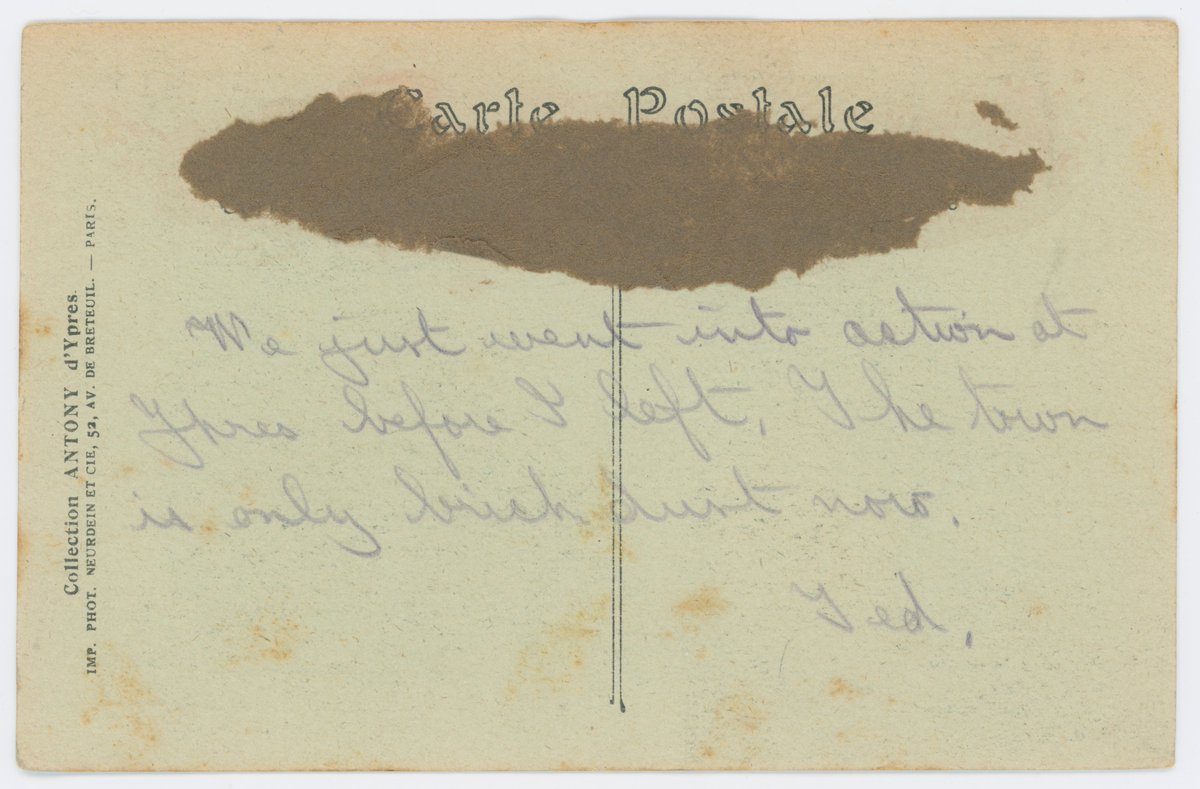 Carte Postale
We just went into action at
Ypres before I left. The town
is only brick dust now.
Ted.
Collection ANTONY d'Ypres.
IMP. PHOT. NEURDEIN ET CIE, 52, AV. DE BRETEUIL. — PARIS.